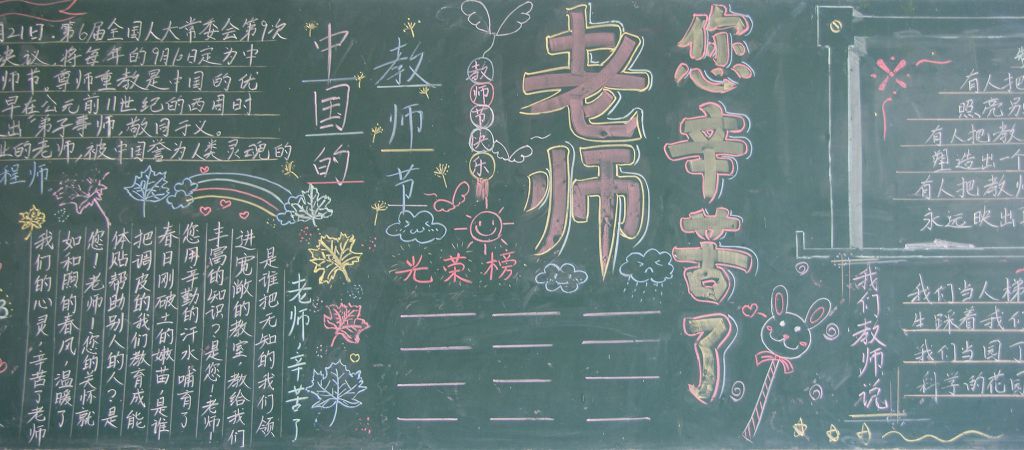 月21日.第6届全国人大常委会第9次
决议.将每年的9月10日定为中
师节。尊师重教是中国的优
早在公元前11世纪的西周时
出"弟子事师,敬同于父。
业的老师,被中国誉为人类灵魂的
程师
中国的
教师节
教师节快乐
老师
您辛苦了
光荣榜
老师辛苦了
是谁把无知的我们领
进宽敞的教室,教给我们
丰富的知识?是您!老师!
您用辛勤的汗水哺育了
春日刚破土的嫩苗!是谁
把调皮的我们教育成能
体贴帮助别人的人?是
您!老师!您的关怀就
如和煦的春风,温暖了
我们的心灵!辛苦了老师
有人把
照亮别
有人把教
塑造出一个
有人把教师
永远映出
我们教师说
我们当人梯
生踩着我们
我们当园丁
科学的花园